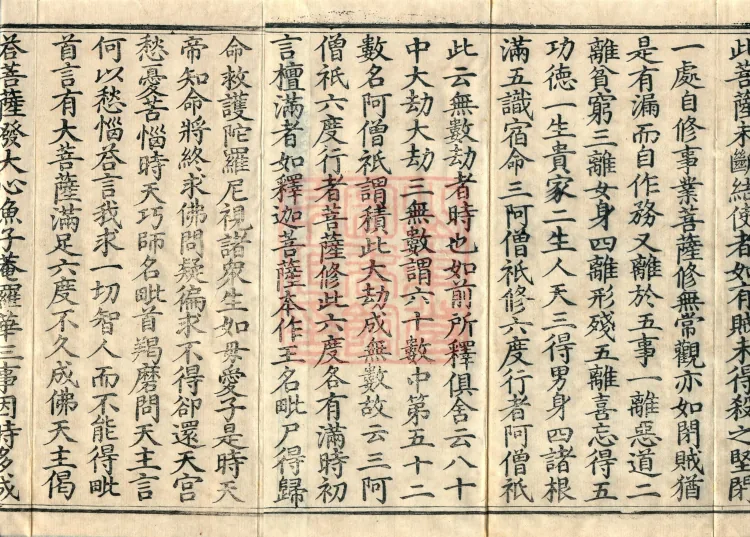 此菩薩未斷結使者如有賊未得殺之堅閉
一處自修事業菩薩修無常觀亦如閉賊猶
是有漏而自作務又離於五事一離惡道二
離貧窮三離女身四離形殘五離喜忘得五
功德一生貴家二生人天三得男身四諸根
滿五識宿命三阿僧祇修六度行者阿僧祇
此云無數劫者時也如前所釋俱舍云八十
中大劫大劫三無數謂六十數中第五十二
數名阿僧祇謂積此大劫成無數故云三阿
僧祇六度行者菩薩修此六度各有滿時初
言檀滿者如釋迦菩薩本作王名毗尸得歸
命救護陀羅尼視諸眾生如母愛子是時天
帝知命將終求佛問疑徧求不得卻還天宮
愁憂苦惱時天巧師名毗首羯磨問天主言
何以愁惱荅言我求一切智人而不能得毗
首言有大菩薩滿足六度不久成佛天主偈
荅菩薩發大心魚子菴羅華三事因時多成